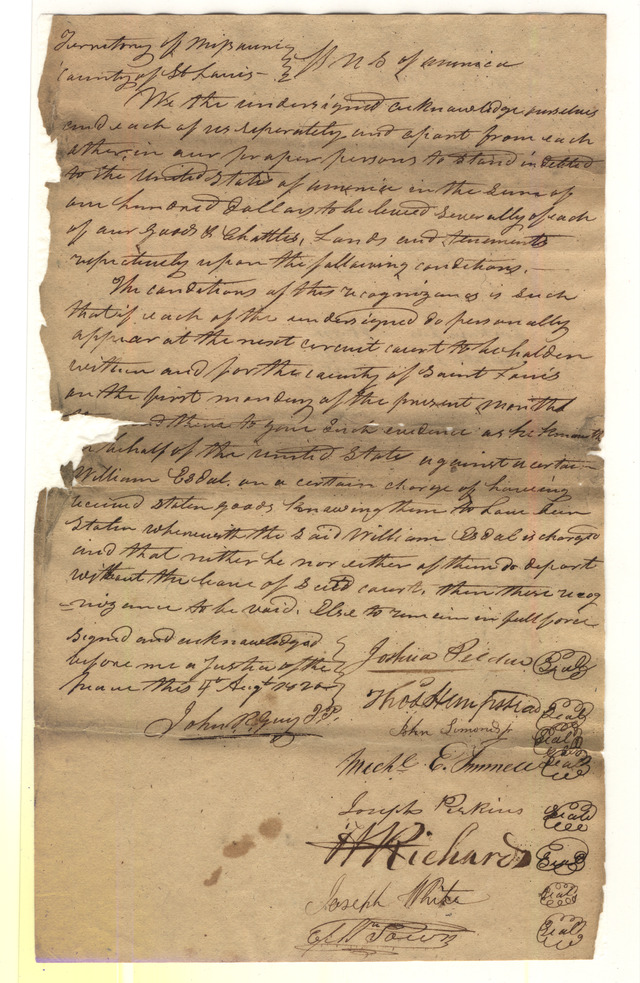 Territory of Missouri
County of St Louis } ss U S of america
We the undersigned acknowledge ourselves
and each of us seperately and apart from each
other, in our proper persons to stand indebted
to the United States of america in the sum of
one hundred Dollars to be levied severally of each
of our Goods & Chattles, Lands and tenements
respectively upon the following conditions.
The conditions of this recognizance is such
that if each of the undersigned do personally
appear at the next circuit court to be holden
within and for the county of Saint Louis
on the first monday of the present month
and there to give such evidence as
behalf of the United States against a certain
William Esdal. on a certain charge of haveing
received stolen goods knowing them to have been
Stolen wherewith the said William Esdal is charged
and that neither he nor either of them do depart
without the leave of said court. then these recog
-nizance to be void. Else to remain in full force
Signed and acknowledged
before me a Justice of the
peace this 4th Augt 1820
John R. Guy J.P.
Joshua Seal
Thos Hempstead Seal
John Simonds jr Seal
Michl. E. Immell Seal
Joseph Perkins Seal
Richards Seal
Joseph White Seal
Town Seal